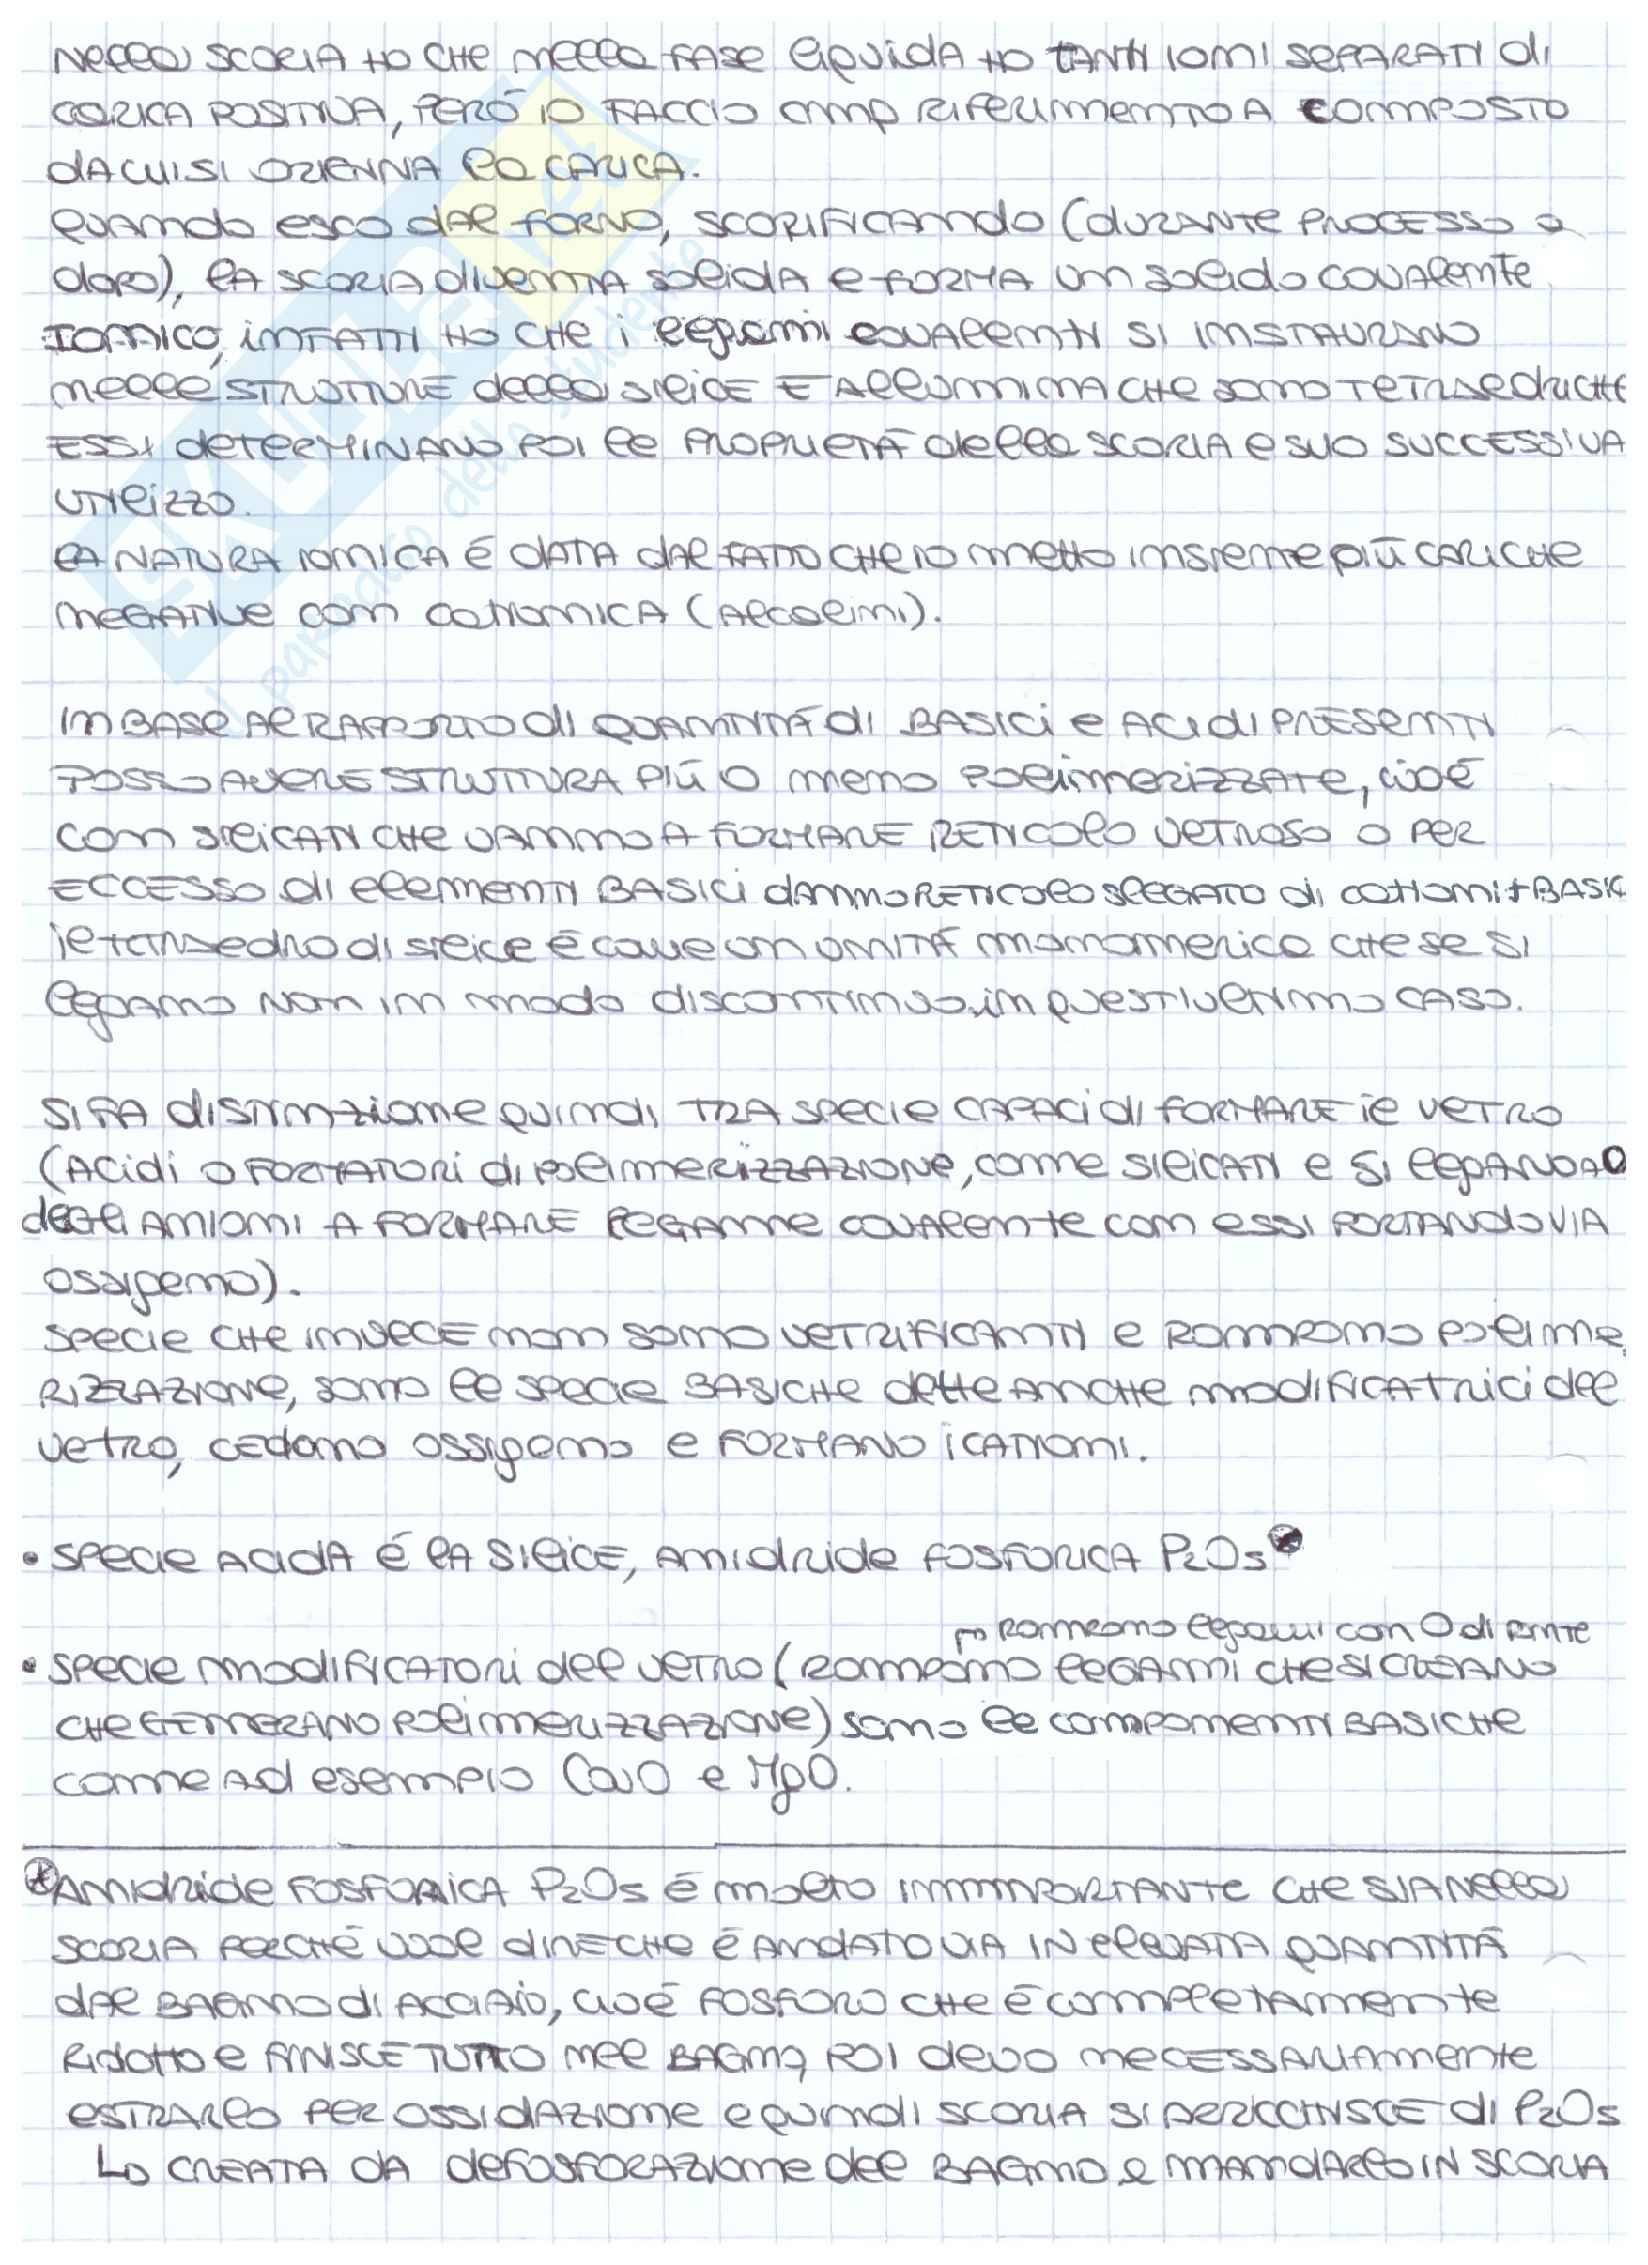 NELLA SCORIA HO CHE NELLA FASE LIQUIDA HO TANTI IONI SEPARATI DI
CARICA POSITIVA, PERÒ IO FACCIO RIFERIMENTO A COMPOSTO
DA CUI SI LA CARICA.
QUANDO ESCO DAL FORNO, SCORIFICANDO (DURANTE PROCESSO O
DOPO), LA SCORIA DIVENTA SOLIDA E FORMA UN SOLIDO COVALENTE
IONICO, INFATTI HO CHE I LEGAMI COVALENTI SI INSTAURANO
NELLE STRUTTURE DELLA SILICE E ALLUMINA CHE SONO TETRAEDRICHE
ESSI DETERMINANO POI LE PROPRIETÀ DELLA SCORIA E SUO SUCCESSIVA
UTILIZZO.
LA NATURA IONICA È DATA DAL FATTO CHE IO METTO INSIEME PIÙ CARICHE
NEGATIVE CON CATIONICA (ALCALINI).
IN BASE AL RAPPORTO DI QUANTITÀ DI BASICI E ACIDI PRESENTI
POSSO AVERE STRUTTURA PIÙ O MENO POLIMERIZZATE, CIOÈ
CON SILICATI CHE VANNO A FORMARE RETICOLO VETROSO O PER
ECCESSO DI ELEMENTI BASICI DANNO RETICOLO SLEGATO DI CATIONI + BASIC
IL TETRAEDRO DI SILICE È COME UN UNITÀ MONOMERICA CHE SE SI
LEGANO NON IN MODO DISCONTINUO, IN QUEST'ULTIMO CASO.
SI FA DISTINZIONE QUINDI, TRA SPECIE CAPACI DI FORMARE IL VETRO
(ACIDI O FORMATORI DI POLIMERIZZAZIONE, COME SILICATI E SI LEGANO AD
DEGLI ANIONI A FORMARE LEGAME COVALENTE CON ESSI PORTANDO VIA
OSSIGENO).
SPECIE CHE INVECE NON SONO VETRIFICANTI E ROMPONO POLIME
RIZZAZIONE, SONO LE SPECIE BASICHE DETTE ANCHE MODIFICATRICI DEL
VETRO, CEDONO OSSIGENO E FORMANO I CATIONI.
• SPECIE ACIDA È LA SILICE, ANIDRIDE FOSFORICA P2O5
↱ ROMPONO LEGAMI CON O DI PONTE
• SPECIE MODIFICATORI DEL VETRO (ROMPONO LEGAMI CHE SI CREANO
CHE GENERANO POLIMERIZZAZIONE) SONO LE COMPONENTI BASICHE
COME AD ESEMPIO CaO e MgO.
* ANIDRIDE FOSFORICA P2O5 È MOLTO IMPORTANTE CHE SIA NELLA
SCORIA PERCHÉ VUOL DIRE CHE È ANDATO VIA IN ELEVATA QUANTITÀ
DAL BAGNO DI ACCIAIO, CIOÈ FOSFORO CHE È COMPLETAMENTE
RIDOTTO E FINISCE TUTTO NEL BAGNO, POI DEVO NECESSARIAMENTE
ESTRARLO PER OSSIDAZIONE E QUINDI SCORIA SI ARRICCHISCE DI P2O5
↳ CREATA DA DEFOSFORAZIONE DEL BAGNO e MANDARLO IN SCORIA
SKUOLA.net
il paradiso dello studente